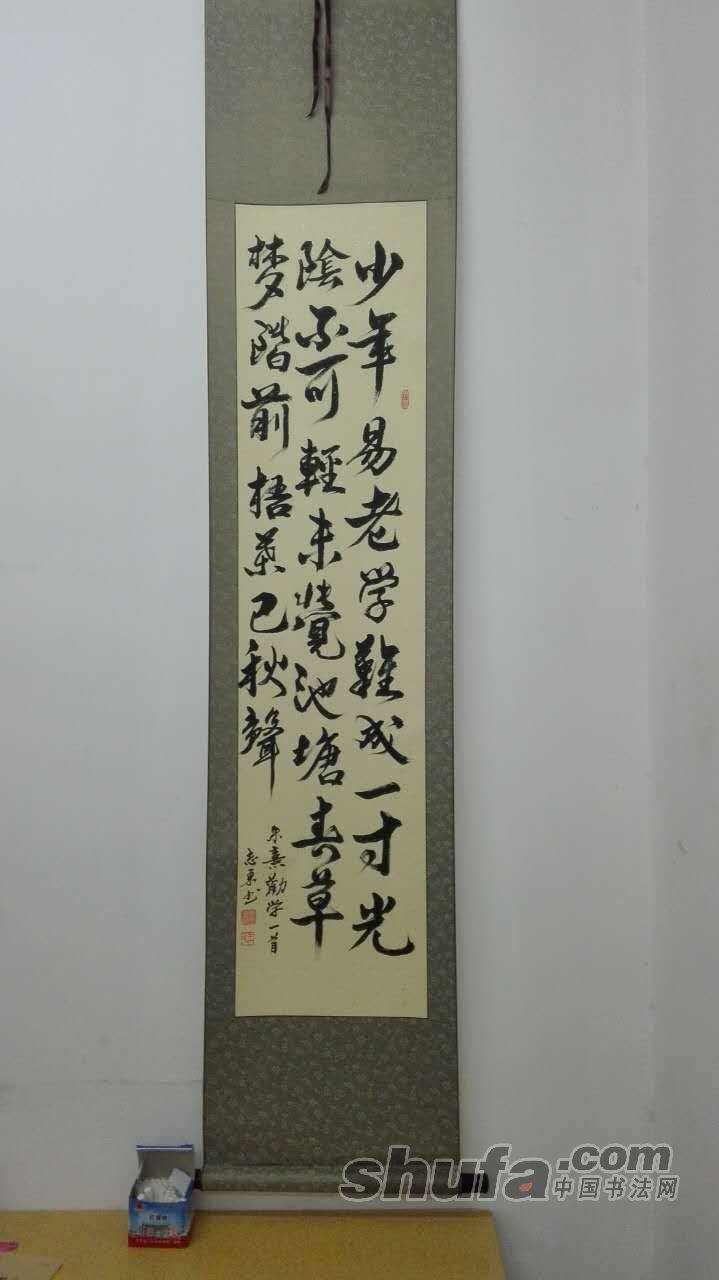 少年易老学難成一寸光
陰不可輕未覺池塘春草
梦階前梧葉已秋聲
朱熹勸学一首
志東书
shufa.com
中国书法网